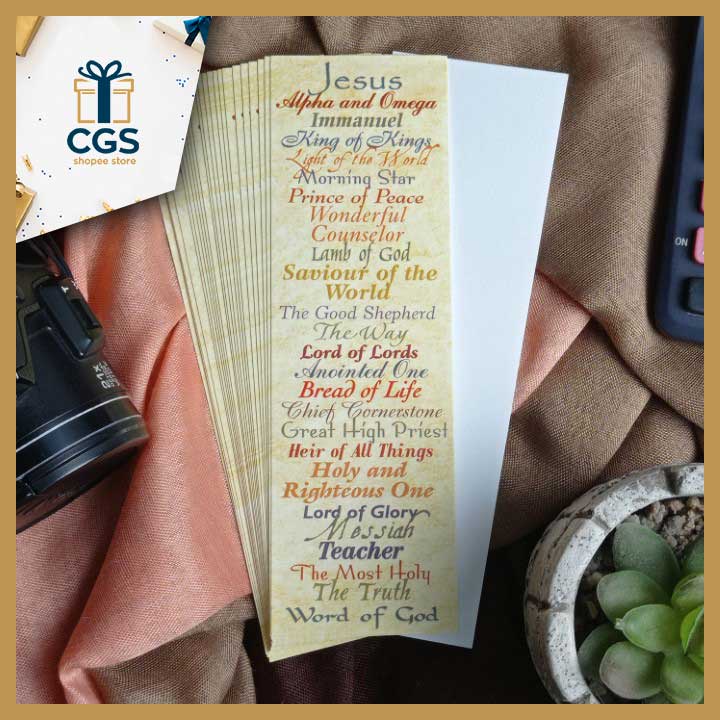 CGS
shopee store
Jesus
Alpha and Omega
Immanuel
King of Kings
Light of the World
Morning Star
Prince of Peace
Wonderful
Counselor
Lamb of God
Saviour of the
World
The Good Shepherd
The Way
Lord of Lords
Anointed One
Bread of Life
Chief Cornerstone
Great High Priest
Heir of All Things
Holy and
Righteous One
Lord of Glory
Messiah
Teacher
The Most Holy
The Truth
Word of God
ON